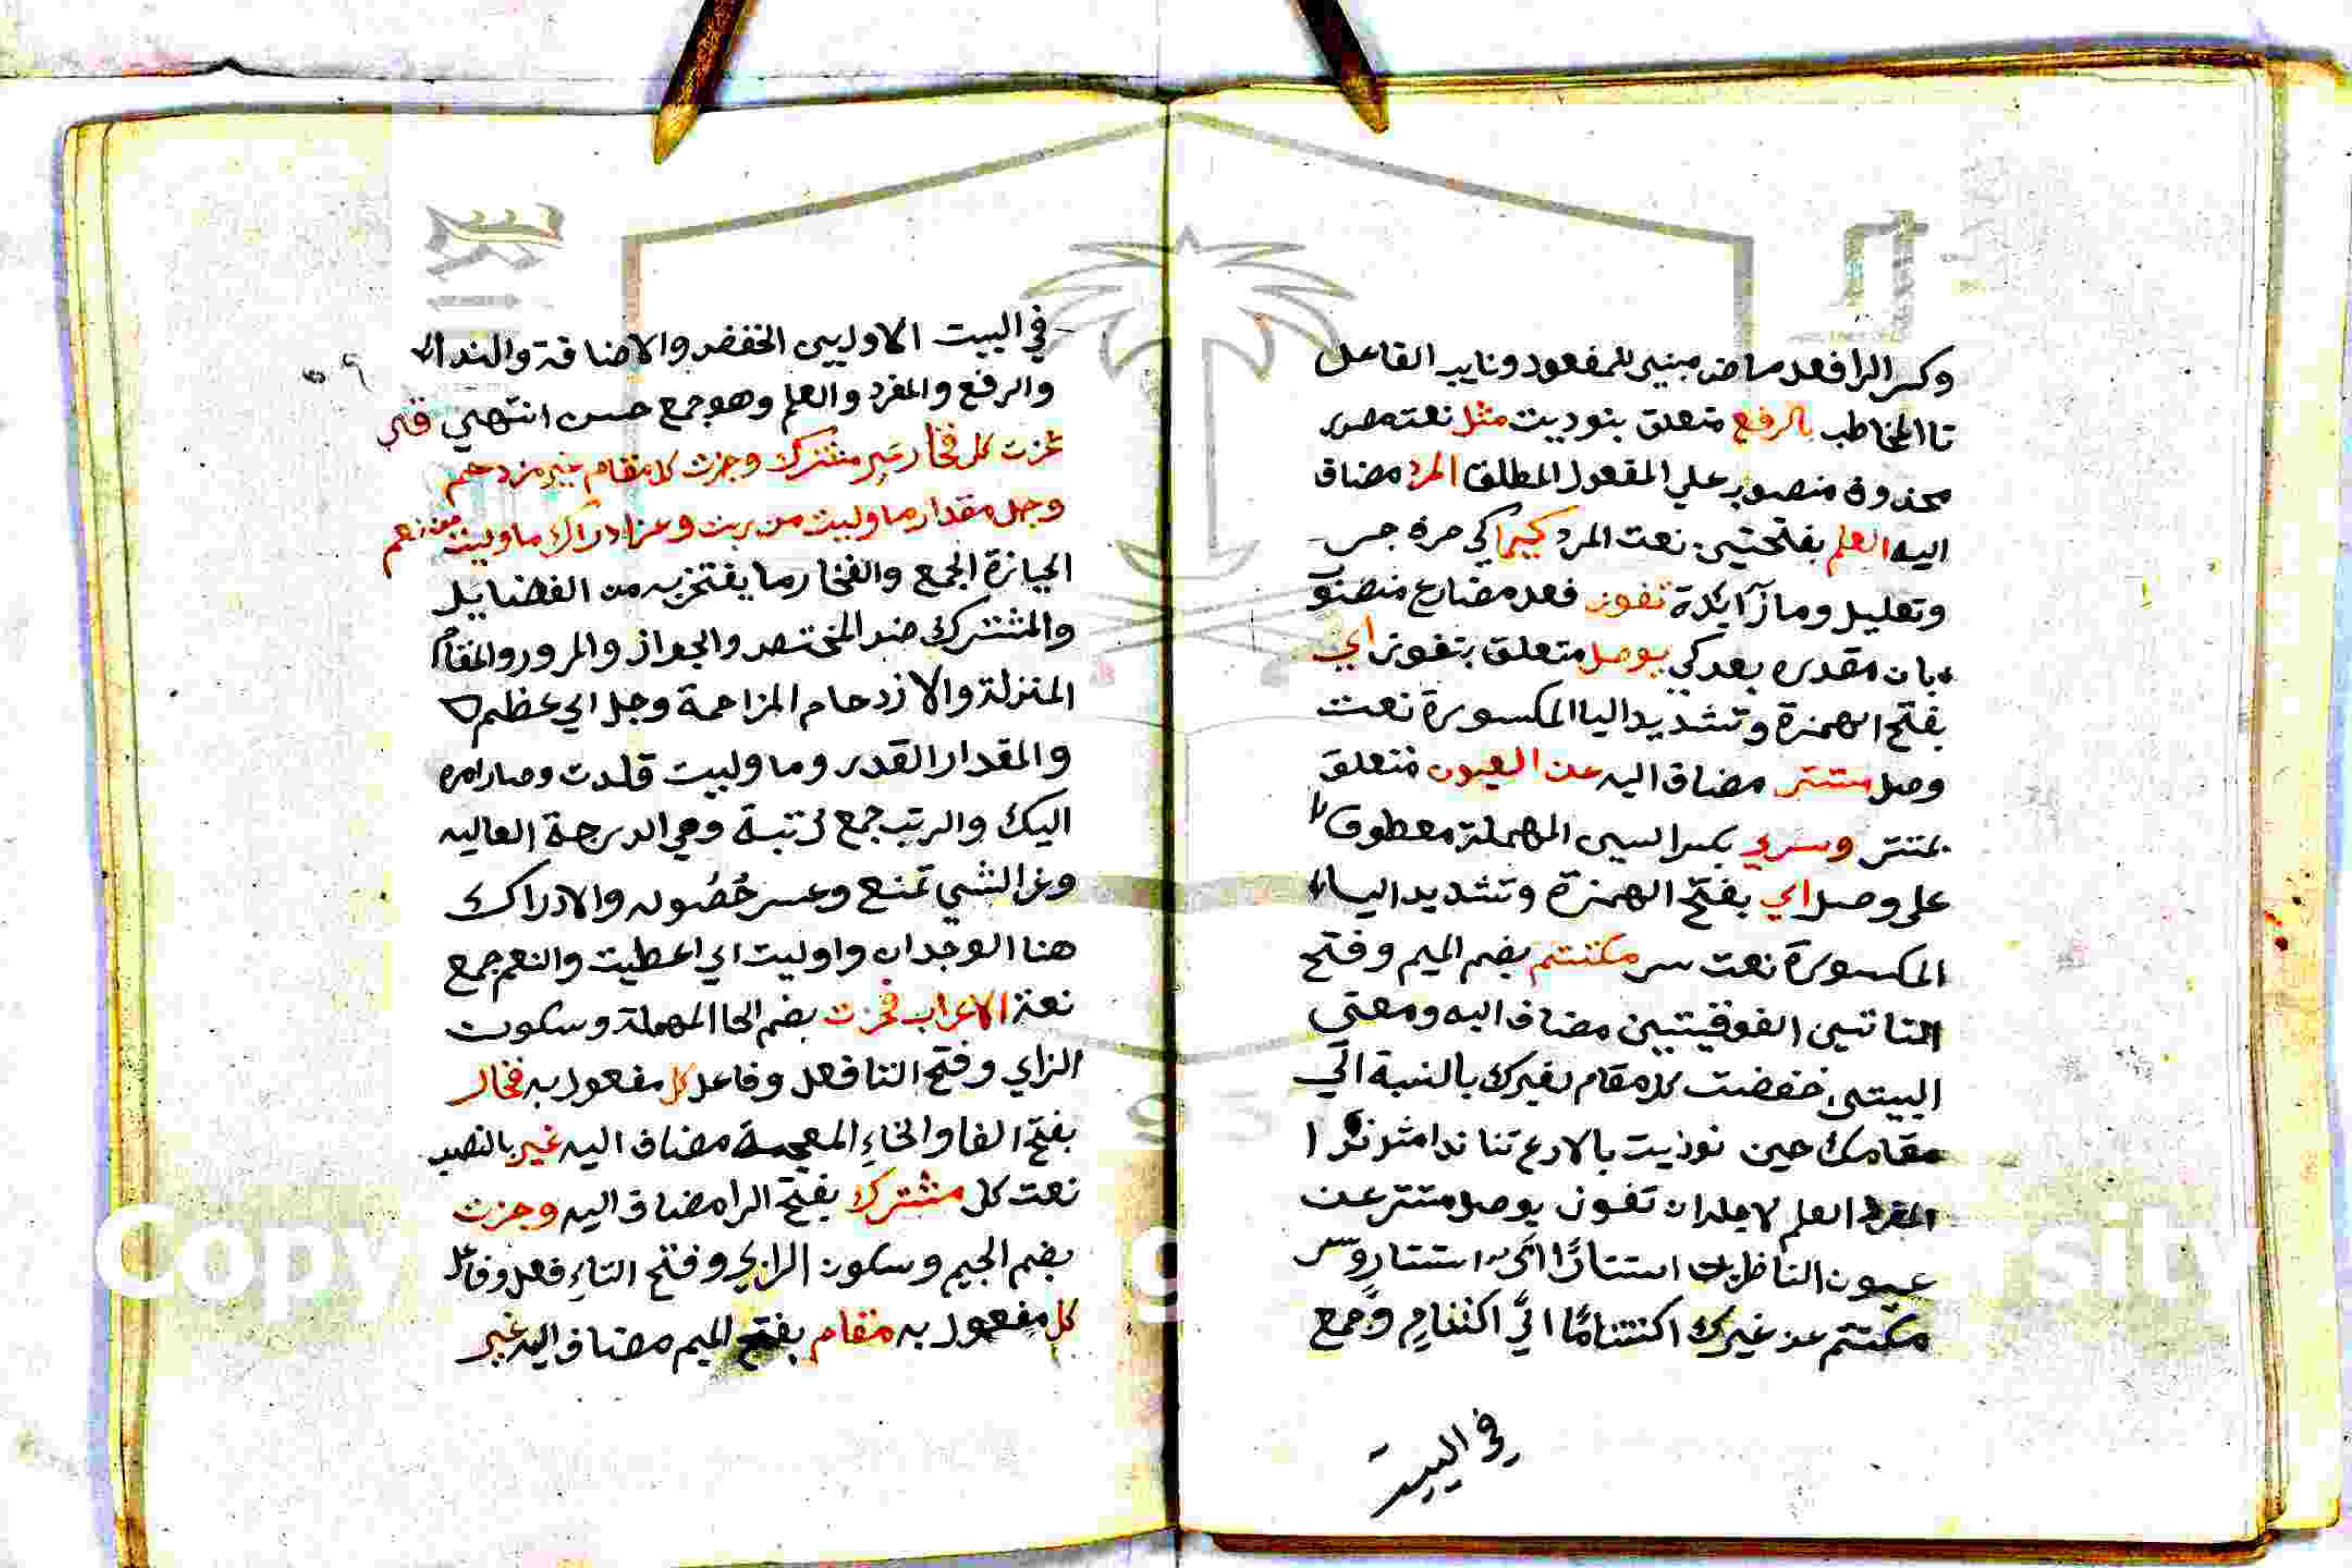 وكسر الرا فعل ماض مبني للمفعول ونايب الفاعل
تا المخاطب بالرفع متعلق بنوديت مثل نعت مصدر
محذوف منصوب علي المفعول المطلق المفرد مضاف
اليه العلم بفتحتين نعت المفرد كيما كي حرف جر
وتعليل وما زايدة تفوز فعل مضارع منصو
بان مقدره بعد كي بوصل متعلق بتفوز اي
بفتح الهمزة وتشديد اليا المكسورة نعت
وصل مستتر مضاف اليه عن العيون متعلق
بمستتر وسر بكسر السين المهملة معطوف
علي وصل اي بفتح الهمزة وتشديد الياء
المكسورة نعت سر مكتتم بضم الميم وفتح
التا تين الفوقيتين مضاف اليه ومعني
البيتين خفضت كل مقام لغيرك بالنسبة الي
مقامك حين نوديت بالارتفاع ندا مثل ندا
المفرد العلم لاجل ان تفوز بوصل مستتر عن
عيون الناظرين استتارا اي استتار وسر
مكتتم عن غيرك اكتتاما اي اكتتام وجمع
في البيت
في البيت الاولين الخفض والاضافة والنداء
والرفع والمفرد والعلم وهو جمع حسن انتهي
فحزت كل فخار غير مشترك وجزت كل مقام غير مزدحم
وجل مقدار ما وليت من رتب وعز ادراك ما وليت من نعم
الحيازة الجمع والفخار ما يفتخر به من الفضايل
والمشترك ضد المختص والجواز والمرور والمقام
المنزلة والازدحام المزاحمة وجل اي عظم
والمقدار القدر وما وليت قلدت وصار امره
اليك والرتب جمع رتبة وهي الدرجة العاليه
وعز الشي تمنع وعسر حصوله والادراك
هنا الوجدان واوليت اي اعطيت والنعم جمع
نعمة الاعراب فحزت بضم الحا المهملة وسكون
الزاي وفتح التا فعل وفاعل كل مفعول به فخار
بفتح الفا والخاء المعجمة مضاف اليه غير بالنصب
نعت كل مشترك بفتح الرا مضاف اليه وجزت
بضم الجيم وسكون الزاي وفتح التاء فعل وفاعل
كل مفعول به مقام بفتح الميم مضاف اليه غير